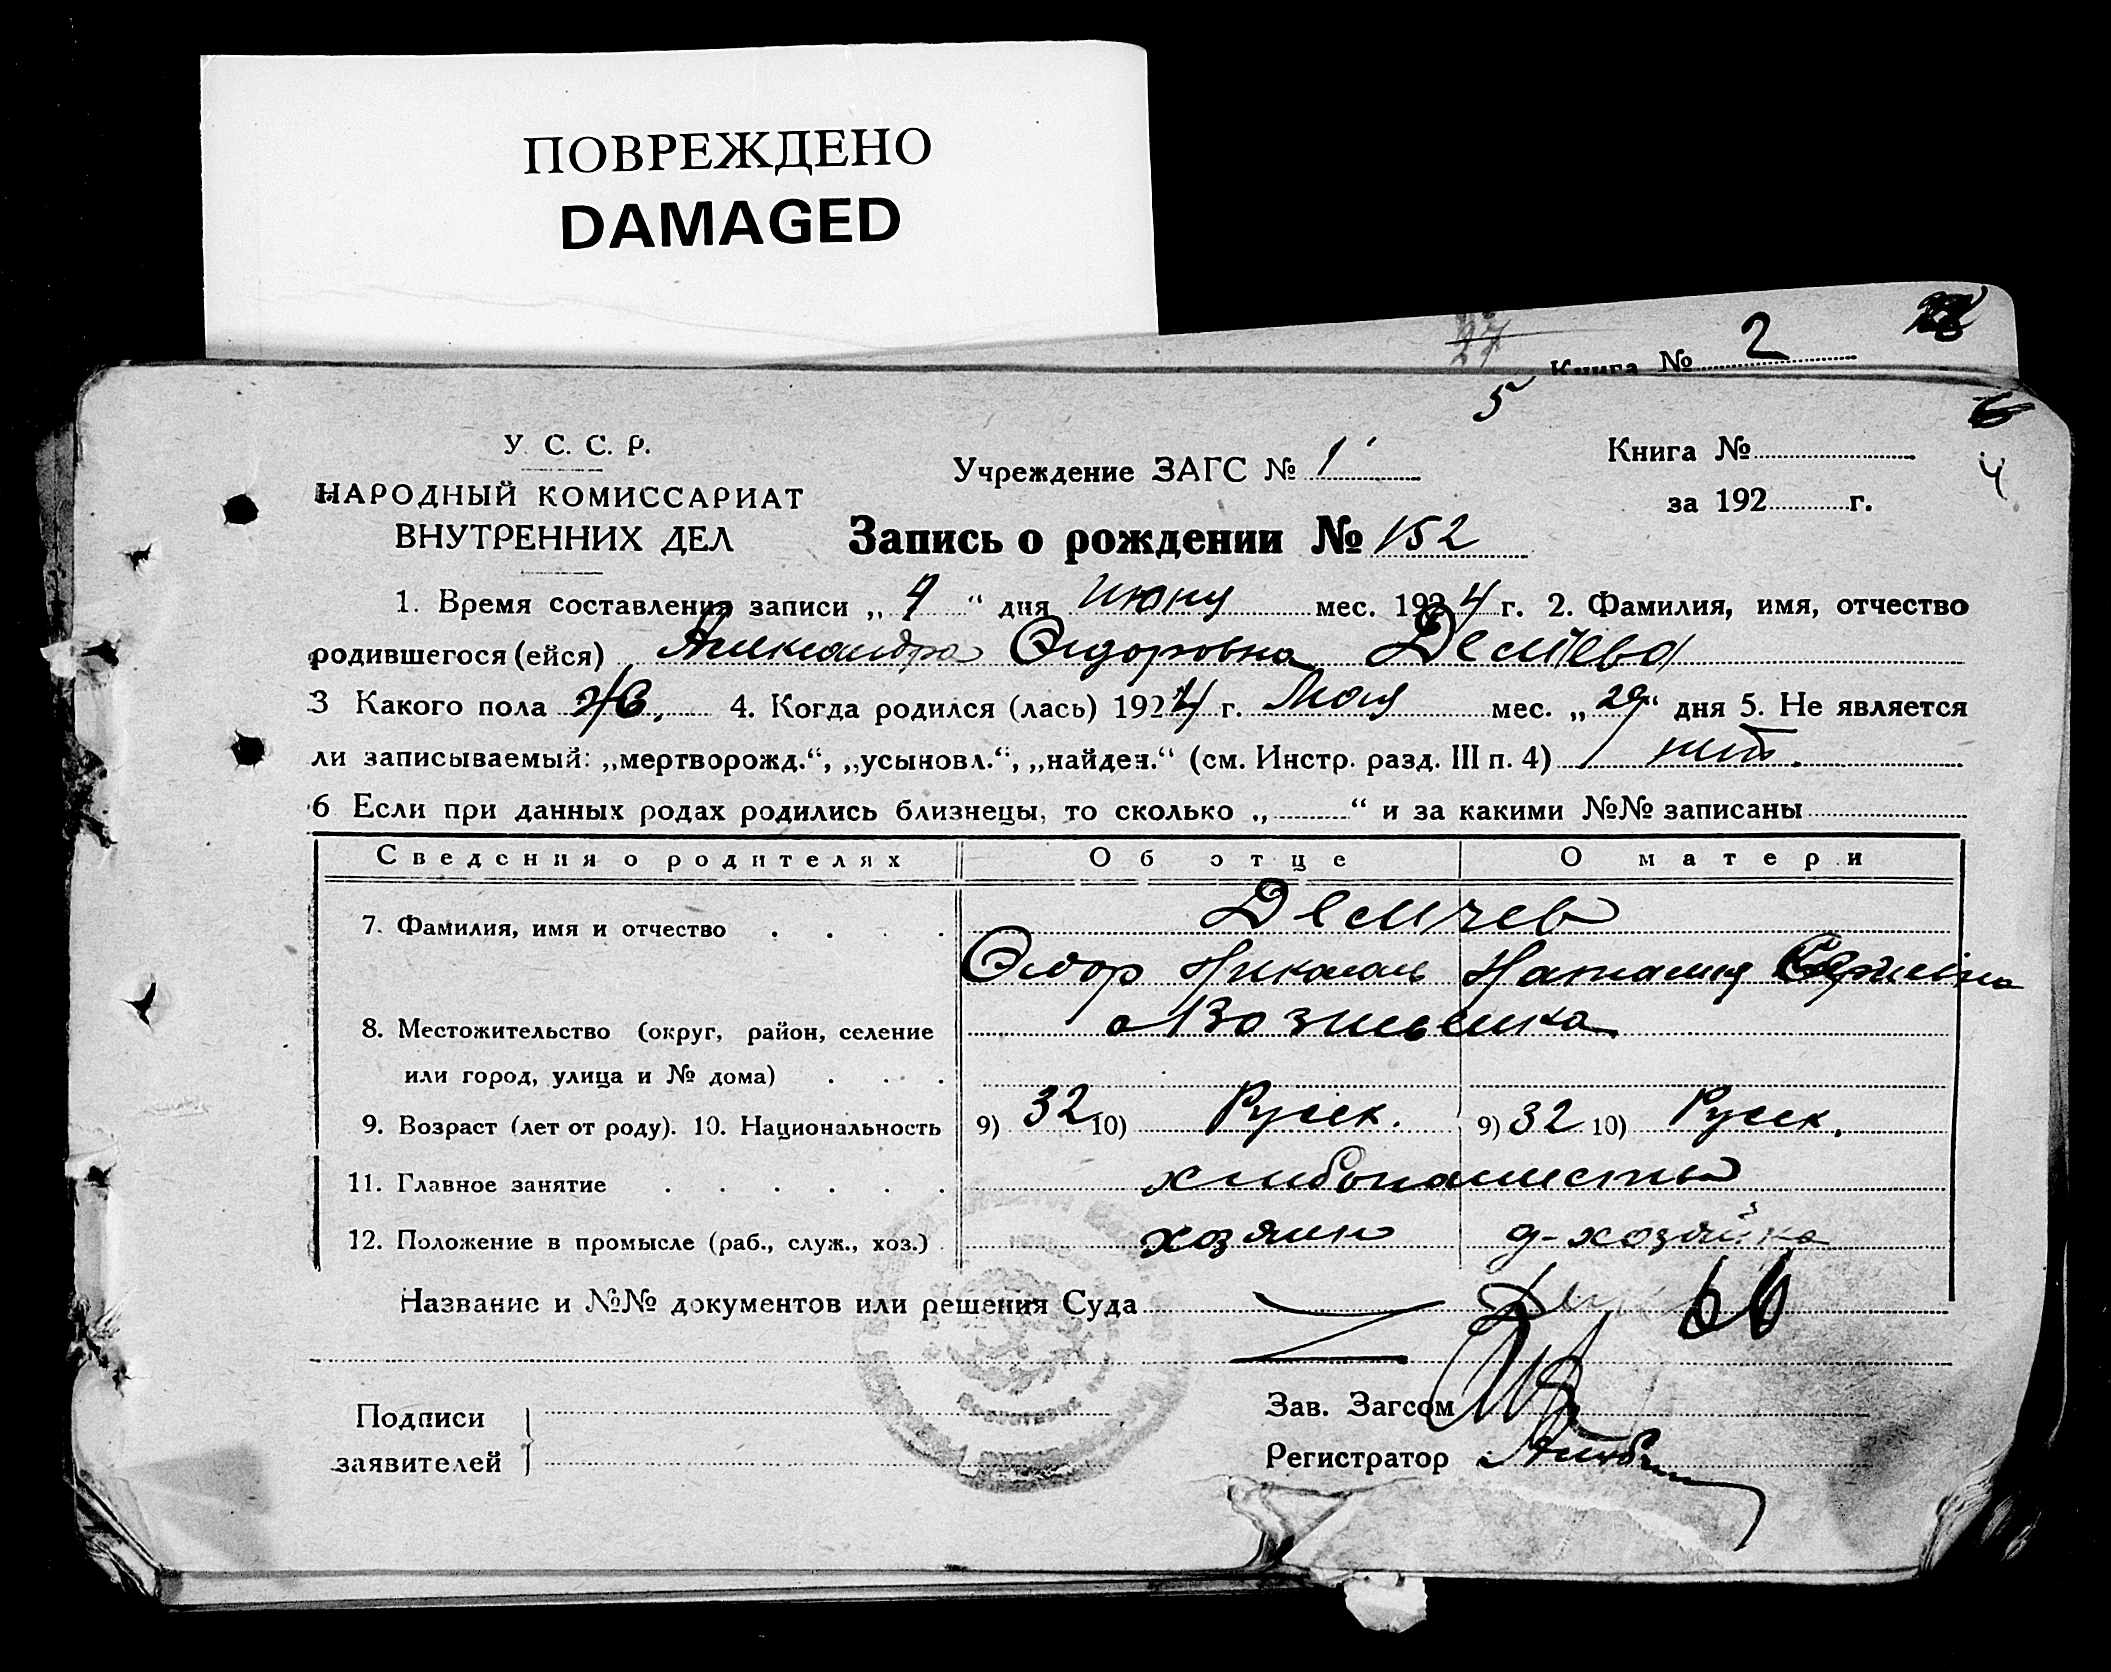 ПОВРЕЖДЕНО
DAMAGED
27
Книга № 2
5
6
У. С. С. Р.
Учреждение ЗАГС № 1
Книга №
4
НАРОДНЫЙ КОМИССАРИАТ
за 192 г.
ВНУТРЕННИХ ДЕЛ
Запись о рождении № 152
1. Время составления записи „ 4 “ дня июня мес. 1924 г. 2. Фамилия, имя, отчество
родившегося (ейся) Александра Сидоровна Демчева
3 Какого пола ж. 4. Когда родился (лась) 1924 г. Мая мес. „ 29 “ дня 5. Не является
ли записываемый: „мертворожд.“, „усыновл.“, „найден.“ (см. Инстр. разд. III п. 4) нет.
6 Если при данных родах родились близнецы, то сколько „ “ и за какими №№ записаны
Сведения о родителях Об отце О матери
7. Фамилия, имя и отчество Демчев
Сидор Николаев Наталия
8. Местожительство (округ, район, селение
или город, улица и № дома)
9. Возраст (лет от роду). 10. Национальность 9) 32 10) Русск. 9) 32 10) Русск.
11. Главное занятие хлебопашество
12. Положение в промысле (раб., служ., хоз.) хозяин д-хозяйка
Название и №№ документов или решения Суда
Подписи
заявителей
Зав. Загсом
Регистратор